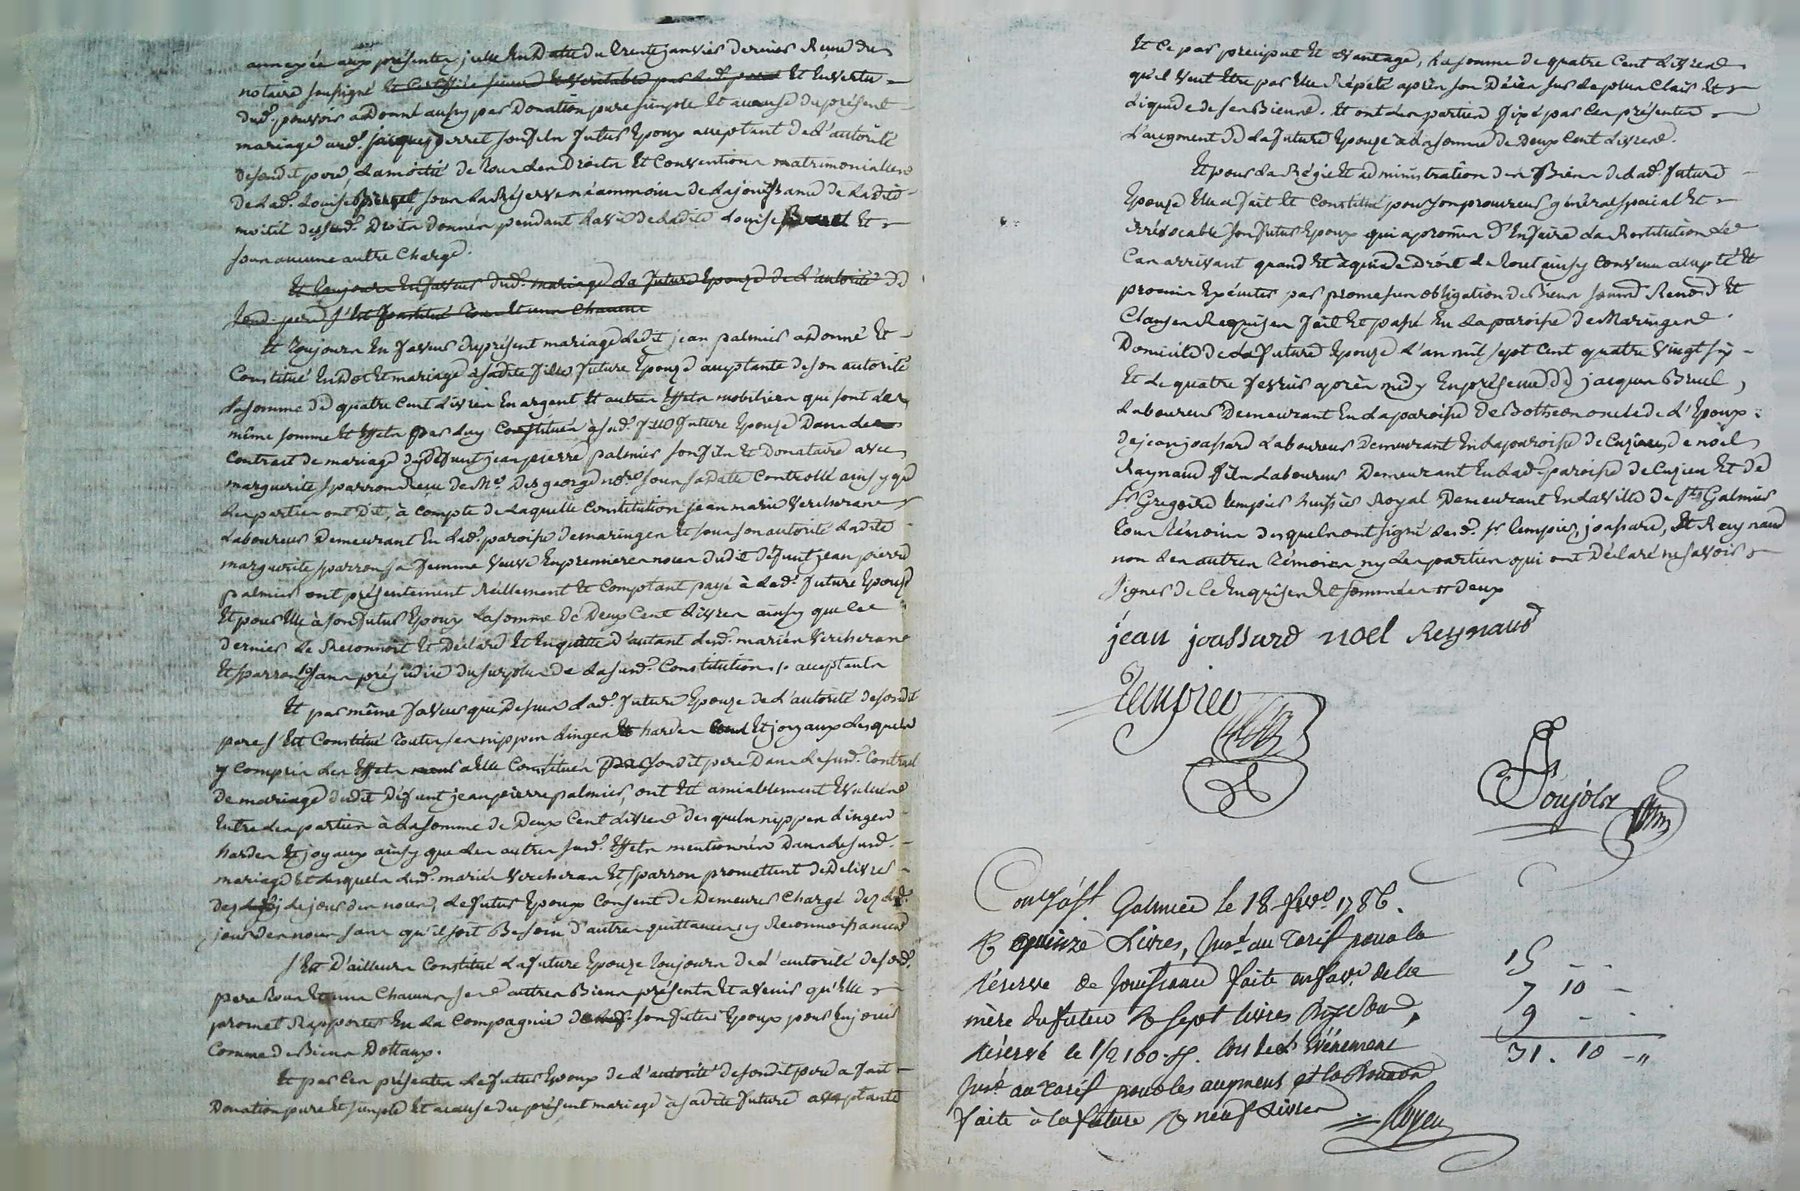 annexée aux présentes, icelle En Datte du trente janvier dernier Reçue du
notaire soussigné et Certifiée sincere et veritable par led. pere Et En vertu
dud. pouvoir a donné aussy par Donation pure simple Et acause du présent
mariage aud. jacques son fils futur Epoux acceptant de l'autorité
de son dit pere la moitié de tous les Droits Et Conventions matrimonialles
de lad. Louise sous la Réserve néammoins de la jouissance de ladite
moitié desusd. Droits donnés pendant la vie de ladite Louise Et
sans aucune autre Charge.
Et toujours En faveur dud. mariage La future Epouze de l'autorité de
sond. pere s'est Constitué Tous Et uns Chacuns
Et toujours En faveur du présent mariage Ledit jean palmier a donné Et
Constitué En dot Et mariage à sadite fille future Epouze acceptante de son autorité
La somme de quatre Cent Livres En argent Et autres Effets mobiliers qui sont Les
même somme Et Effets par luy Constitués à sad. fille future Epouze Dans le
Contrat de mariage du défunt jean pierre palmier son fils Et Donataire avec
marguerite sparron Reçu de Me. Desgeorge nore. sous sa date Controllé ainsy que
Les parties ont Dit, à compte de laquelle Constitution jean marie Vercherand
Laboureur Demeurant En lad. paroise de maringes Et sous son autorité Ladite
marguerite sparron sa femme Veuve En premieres noces dudit défunt jean pierre
palmier ont présentement Réellement Et Comptant payé à lad. future Epouse
Et pour Elle à son futur Epoux La somme de Deux Cent Livres ainsy que Ce
dernier le Reconnoit Et Déclare Et En quitte d'autant lesd. mariés Vercherand
Et sparron sans préjudice du surplus de la susd. Constitution acceptants
Et par même faveur que Dessus Lad. future Epouze de l'autorité de sondit
pere s'Est Constitué Toutes ses nippes Linges hardes Et joyaux Lesquels
y Compris Les Effets a Elle Constitués sondit pere Dans Le susd. Contrat
de mariage dudit défunt jean pierre palmier, ont Eté amiablement Evalués
Entre Les parties à La somme de Deux Cent Livres Desquels nippes Linges
hardes Et joyaux ainsy que Les autres susd. Effets mentionnés Dans Le susd.
mariage Et Lesquels Lesd. mariés Vercheran Et sparron promettent de Delivrer
le jour des noces, Le futur Epoux Consent de Demeurer Chargé dez led.
jour des noces sans qu'il soit Besoin d'autres quittances ny Reconnoissances
s'Est D'ailleurs Constitué La future Epouze Toujours de L'autorité de sond.
pere Tous Et uns Chacuns ses autres Biens présents Et avenir qu'Elle
promet Rapporter En La Compagnie de son futur Epoux pour En jouir
Comme de Biens Dottaux.
Et par Les présentes Le futur Epoux de l'autorité de sondit pere a fait
Donation pure Et simple Et acause du présent mariage à sadite future acceptante
Et Ce par préciput Et avantage, La somme de quatre Cent Livres
qu'il veut Etre par Elle Répété après son Décès sur le plus Clair Et
Liquide de ses Biens. Et ont Les parties fixé par Ces présentes
L'augment de La future Epouze à La somme de Deux Cent Livres.
Et pour La Régie Et administration des Biens de Lad. future
Epouze Elle a fait Et Constitué pour son procureur général spécial Et
irrévocable son futur Epoux qui a promis D'En faire La Restitution Le
Cas arrivant quand Et à qui de Droit Le tout ainsy Convenu accepté Et
promis Exécuter par promesses obligation de Biens soumd. Renond. Et
Clauses Requises fait Et passé En La paroise de Maringes
Domicile de La future Epouze L'an mil sept Cent quatre vingt six
Et Le quatre fevrier après midy En présence de jacques Bruel,
Laboureur Demeurant En La paroise de Bothéon oncle de L'Epoux,
de jean joassard Laboureur Demeurant En La paroise de Cuzieu, de noël
Raynaud fils Laboureur Demeurant En Lad. paroise de Cuzieu Et de
Sr. Gregoire tempier huissier Royal Demeurant En La Ville de St. Galmier
Tous Témoins Desquels ont signé Lesd. Sr. tempier, joassard, Et Reynaud
non Les autres Témoins ny Les parties qui ont Déclaré ne savoir
signer de Ce Enquis Et sommés deux
jean joassard noel Reynaud
tempier
Poujolx
Conté à St. Galmier le 18. fevr. 1786.
R quinze Livres, suivt. au Tarif pour la
réserve de Jouissance faite en fav. de la
mère du futur & sept livres dix sous,
Réservé le 1/2 100 lors de L'Evénement
suivt. au Tarif pour les augment et la Donaon
faite à la future & neuf Livres
15 - -
7 10 -
9 - -
31. 10 - "